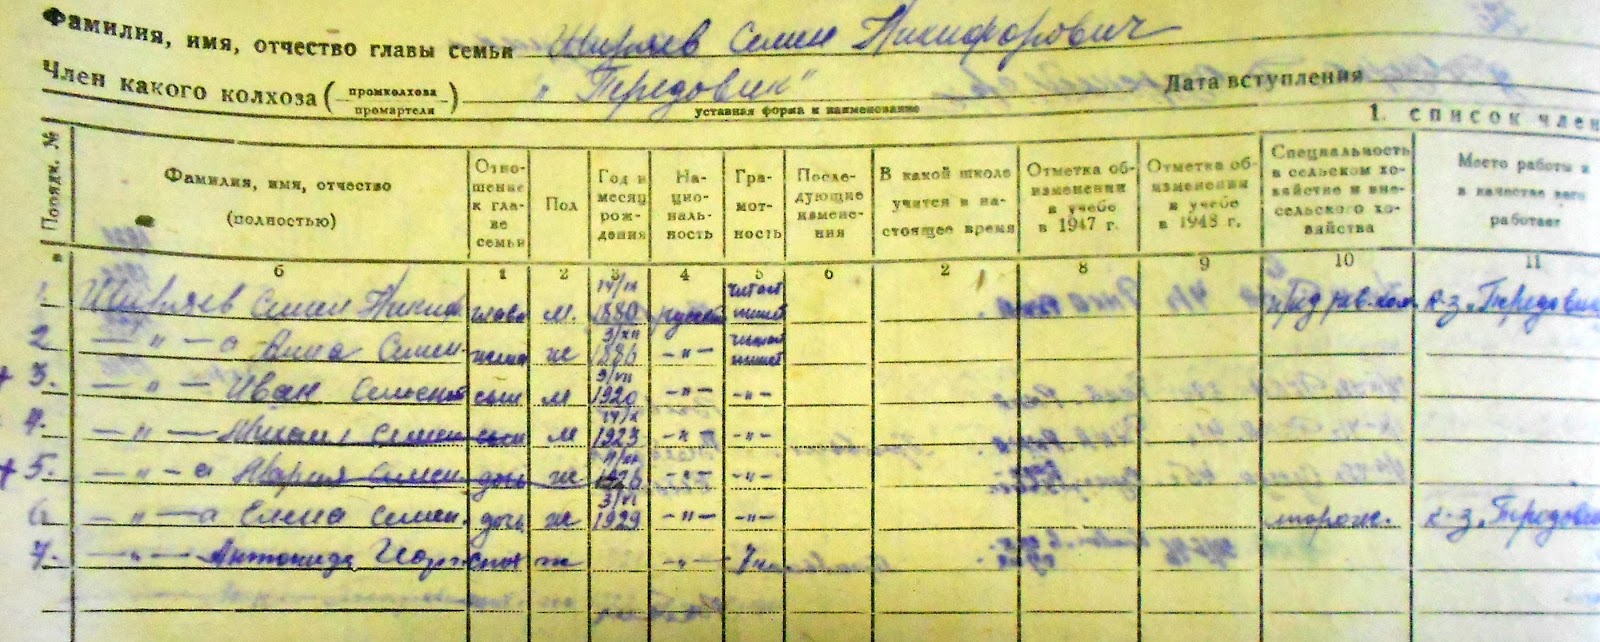 Фамилия, имя, отчество главы семьи Ширяев Семен Никифорович
Член какого колхоза (промколхоза промартели) „Передовик" Дата вступления
уставная форма и наименование
1. список член
Порядк. № Фамилия, имя, отчество (полностью) Отношение к главе семьи Пол Год и месяц рождения Национальность Грамотность Последующие изменения В какой школе учится в настоящее время Отметка об изменении в учебе в 1947 г. Отметка об изменении в учебе в 1948 г. Специальность в сельском хозяйстве и вне сельского хозяйства Место работы и в качестве чего работает
а б 1 2 3 4 5 6 2 8 9 10 11
1. Ширяев Семен Никиф глава м. 1880 русский читает пишет к-з „Передовик
2 — „ — а Анна Семен. жена ж 9/XII 1886 — „ — читает пишет
+ 3. — „ — Иван Семенов сын м 9/VII 1920 — „ — — „ —
4. — „ — Михаил Семен сын м 14/X 1923 — „ — — „ —
+ 5. — „ — а Мария Семен дочь ж 1926 — „ — — „ —
6 — „ — а Елена Семен. дочь ж 3/VI 1929 — „ — — „ — к-з „Передовик
7. — „ — Антонида Георг ж — „ —